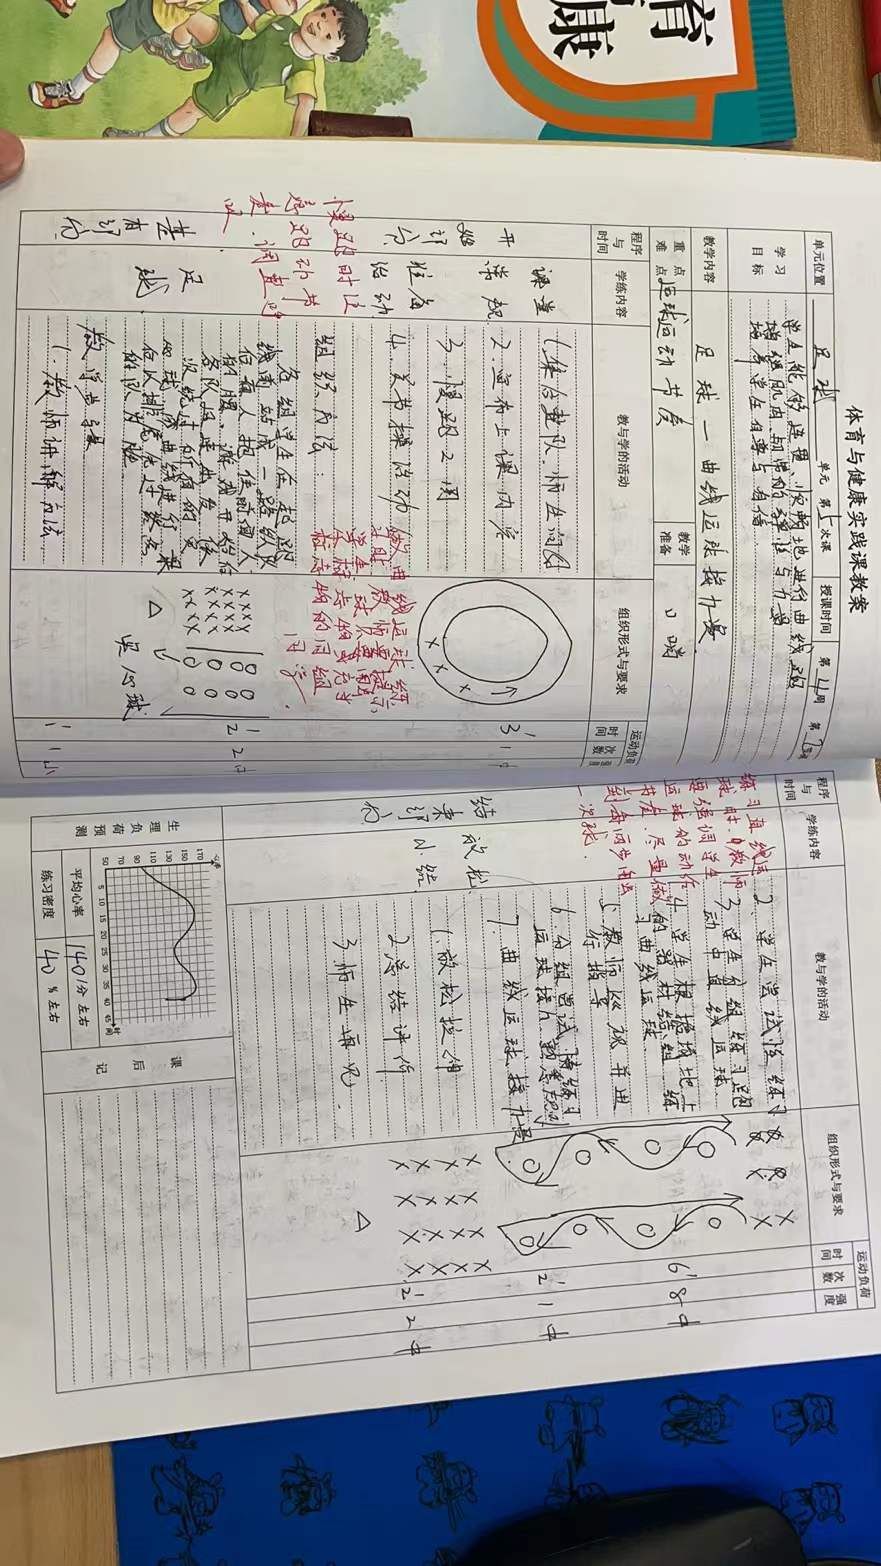 体育与健康实践课教案
单元位置 足球 单元 第5次课 授课时间 第4周 第2
学习目标
学生能够连贯、顺畅地进行曲线跑
增强肌肉、韧带的弹性与力量
培养学生自尊与自信.
教学内容 足球—曲线运球接力赛.
重点难点 运球运动节奏 教学准备 口哨
程序与时间 学练内容 教与学的活动 组织形式与要求 运动负荷
时间 次数 强度
开始部分
课堂常规
准备活动
1.集合整队.师生问好
2.宣布上课内容
3.慢跑2周
4.关节操活动
3' 1 中
慢跑时注
意跑动节
奏.调整呼
吸.
做曲线运球练
习时 教师要提示
学生 球不要用出
及标志物或充当
标志物的同组
同学.
基本部分
足球.
组织方法:
各组学生在起跑
线前站成一路纵队
后面人抱住前面人
的腰.游戏开始后
各队迅速出发 依
次绕过所有的实
心球 成曲线进行 最
后以排尾先过终点
的队为胜.
教学步骤
1.教师讲解方法.
实心球
1' 2 2 中
1' 1 小
程序与时间 学练内容 教与学的活动 组织形式与要求 运动负荷
时间 次数 强度
练习直线运
球时.教师
要强调学生
运球的动作
节奏.尽量做
到每两步用出
一次球.
2.学生尝试性练习
3.学生分组练习跑
动中直线运球
4.学生根据场地上
的器材结组 练
习曲线运球.
5.教师巡视并进
行指导
6.分组尝试性练习
运球接力.熟悉规则
7.曲线运球.接力赛
6' 8 中
2' 1 中
结束部分
放松
小结.
1.放松拉伸
2.总结评价.
3.师生再见.
2' 2 中
生理负荷预测
心率
170
150
130
110
90
70
50
5 10 15 20 25 30 35 40 45 时间
平均心率 140 1/分 左右
练习密度 40 % 左右
课后记
育
与
康